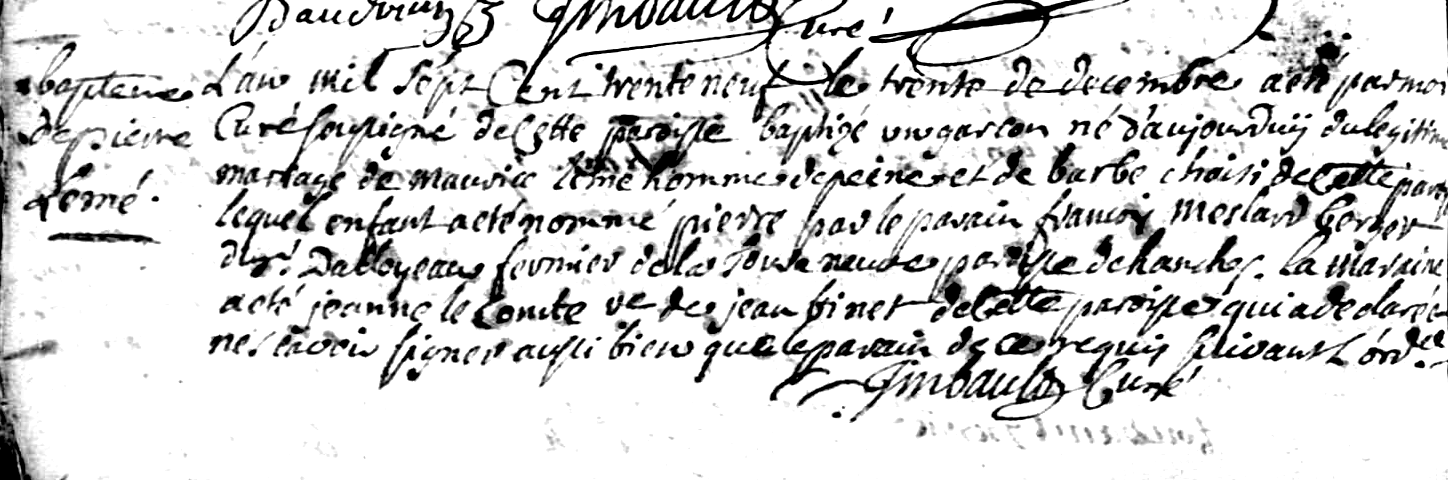 Baudouin Jimbault Curé
bapteme L'an mil sept Cent trente neuf le trente de decembre a eté par moi
de pierre Curé soussigné de Cette paroisse baptizé un garcon né d'aujourduij du legitime
Lemé. mariage de maurice lemé homme de peine et de barbe choisi de Cette parois
lequel enfant a eté nommé pierre par le parain francois meslard berger
du sr. Dalloyeau fermier de la Tour neuve paroisse de hanches. La maraine
a eté jeanne le Comte ve de jean finet de Cette paroisse qui a declaré
ne scavoir signer aussi bien que le parain de ce requis suivant L'ordce.
Jimbault Curé